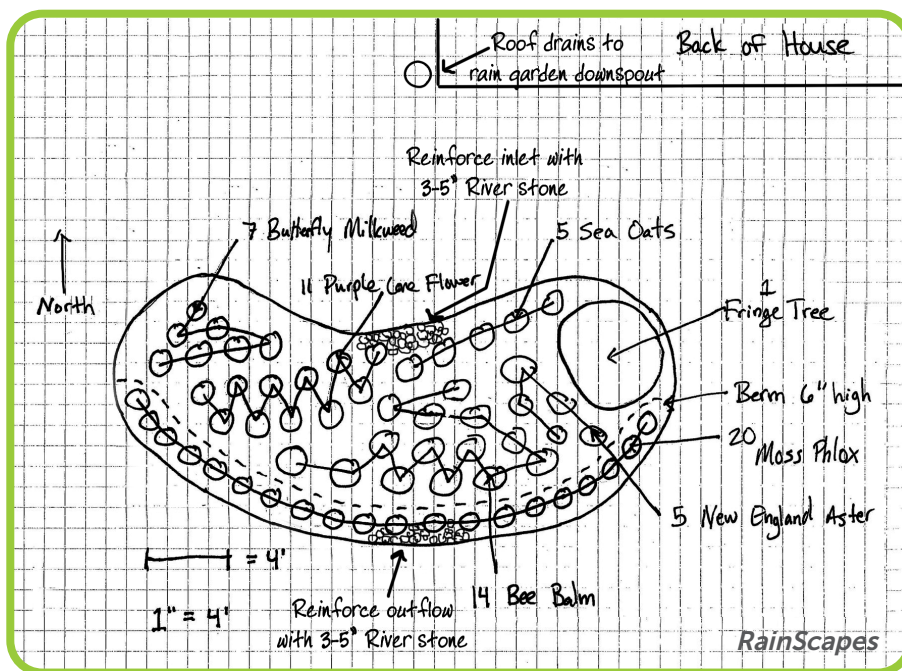 Roof drains to
rain garden downspout
Back of House
Reinforce inlet with
3-5" River stone
7 Butterfly Milkweed
5 Sea Oats
11 Purple Cone Flower
North
1
Fringe Tree
Berm 6" high
20
Moss Phlox
5 New England Aster
= 4'
14 Bee Balm
1" = 4'
Reinforce outflow
with 3-5" River stone
RainScapes